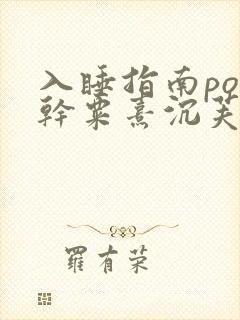 入睡指南po
幹粟熹沉芙
羅有荣